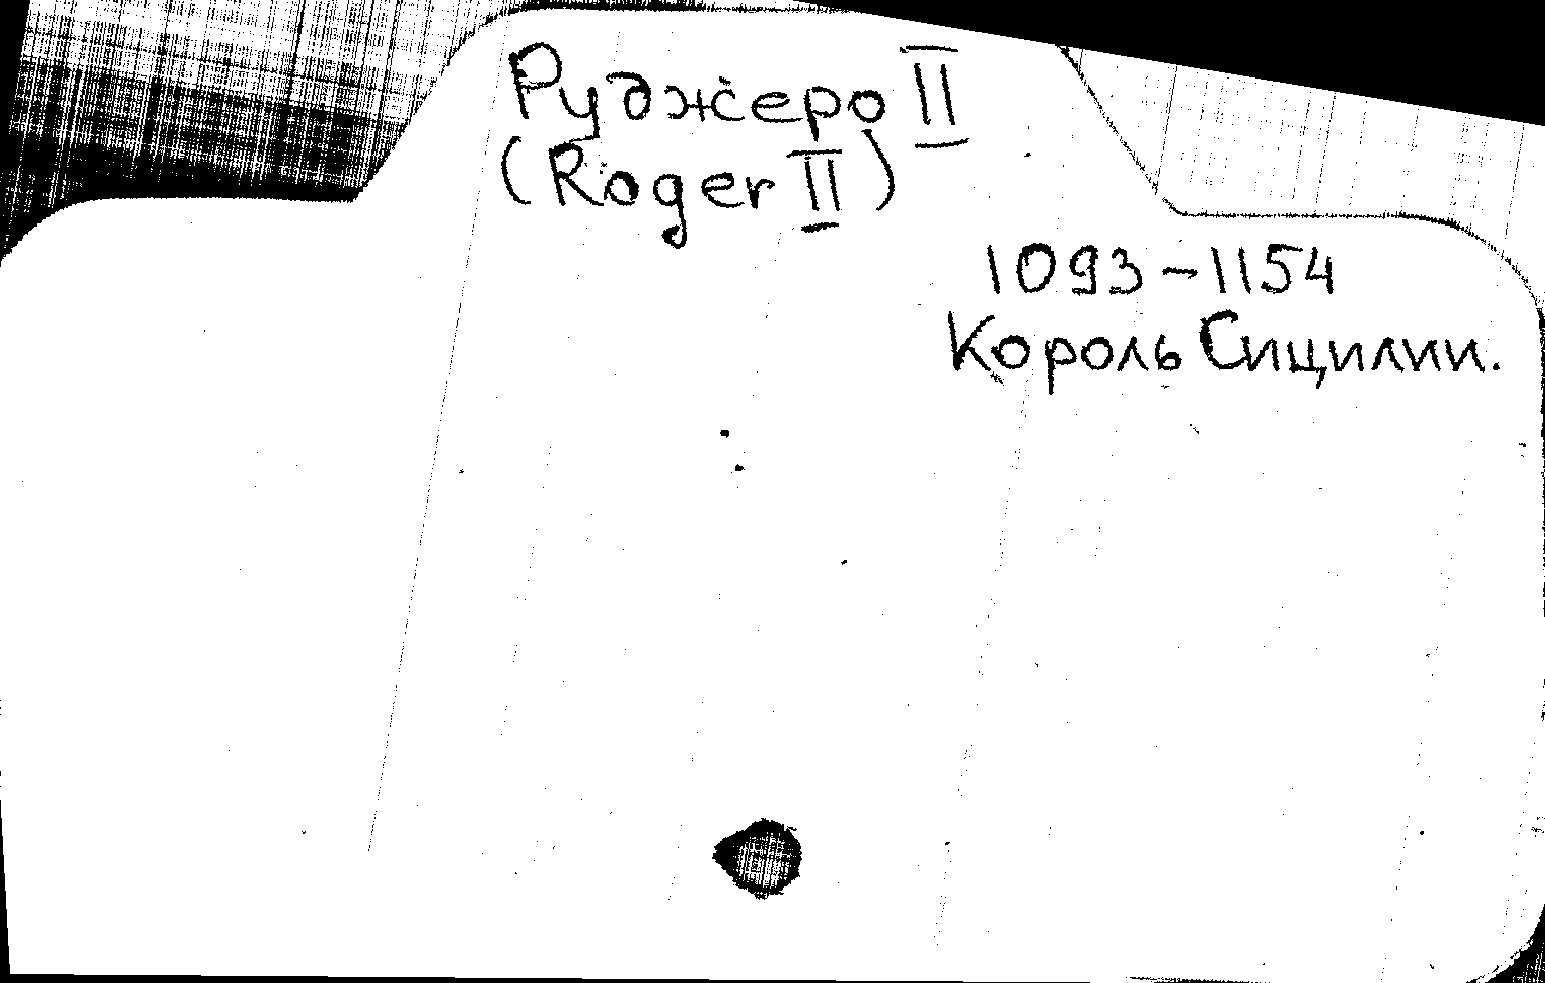 Руджеро II
(Roger II)
1093-1154
Король Сицилии.